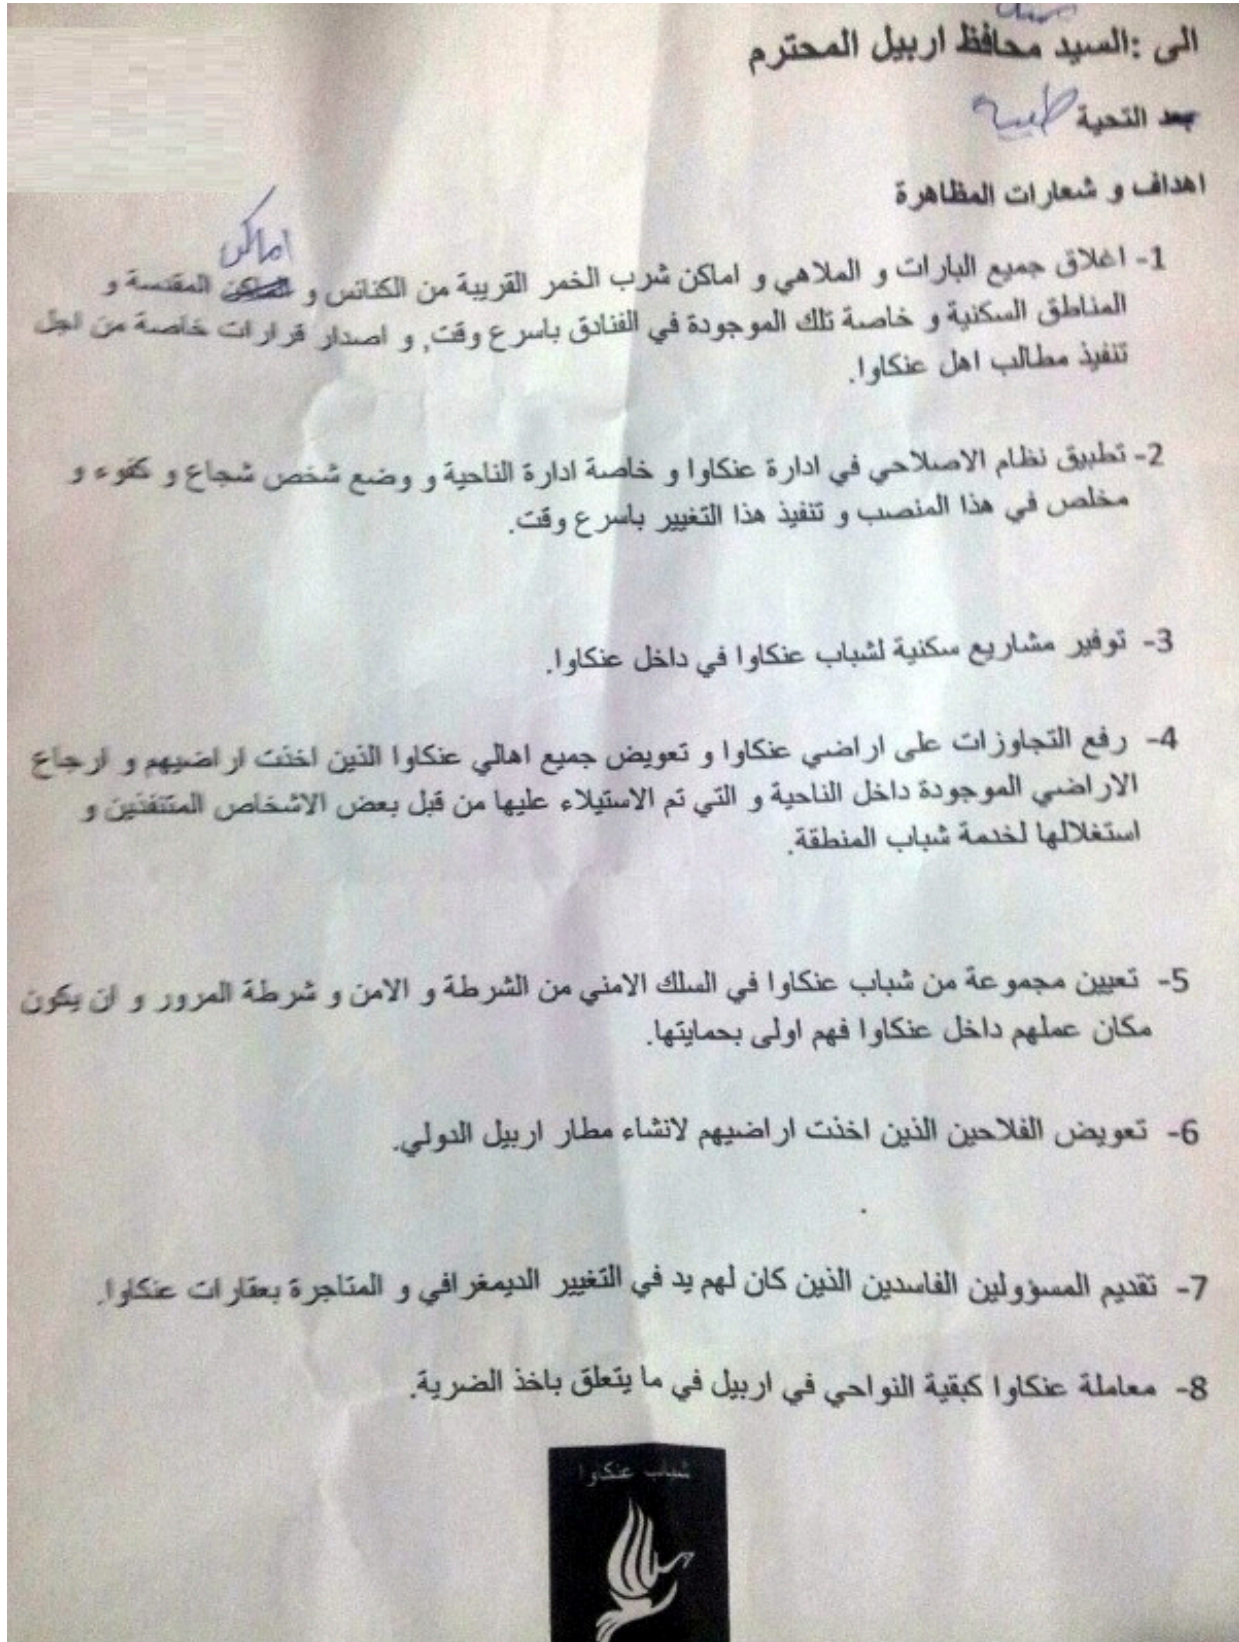 الى :السيد محافظ اربيل المحترم
بعد التحية طيبة
اهداف و شعارات المظاهرة
اماكن
1- اغلاق جميع البارات و الملاهي و اماكن شرب الخمر القريبة من الكنائس و المقدسة و
المناطق السكنية و خاصة تلك الموجودة في الفنادق باسرع وقت, و اصدار قرارات خاصة من اجل
تنفيذ مطالب اهل عنكاوا.
2- تطبيق نظام الاصلاحي في ادارة عنكاوا و خاصة ادارة الناحية و وضع شخص شجاع و كفوء و
مخلص في هذا المنصب و تنفيذ هذا التغيير باسرع وقت.
3- توفير مشاريع سكنية لشباب عنكاوا في داخل عنكاوا.
4- رفع التجاوزات على اراضي عنكاوا و تعويض جميع اهالي عنكاوا الذين اخذت اراضيهم و ارجاع
الاراضي الموجودة داخل الناحية و التي تم الاستيلاء عليها من قبل بعض الاشخاص المتنفذين و
استغلالها لخدمة شباب المنطقة.
5- تعيين مجموعة من شباب عنكاوا في السلك الامني من الشرطة و الامن و شرطة المرور و ان يكون
مكان عملهم داخل عنكاوا فهم اولى بحمايتها.
6- تعويض الفلاحين الذين اخذت اراضيهم لانشاء مطار اربيل الدولي.
7- تقديم المسؤولين الفاسدين الذين كان لهم يد في التغيير الديمغرافي و المتاجرة بعقارات عنكاوا.
8- معاملة عنكاوا كبقية النواحي في اربيل في ما يتعلق باخذ الضرية.
شباب عنكاوا